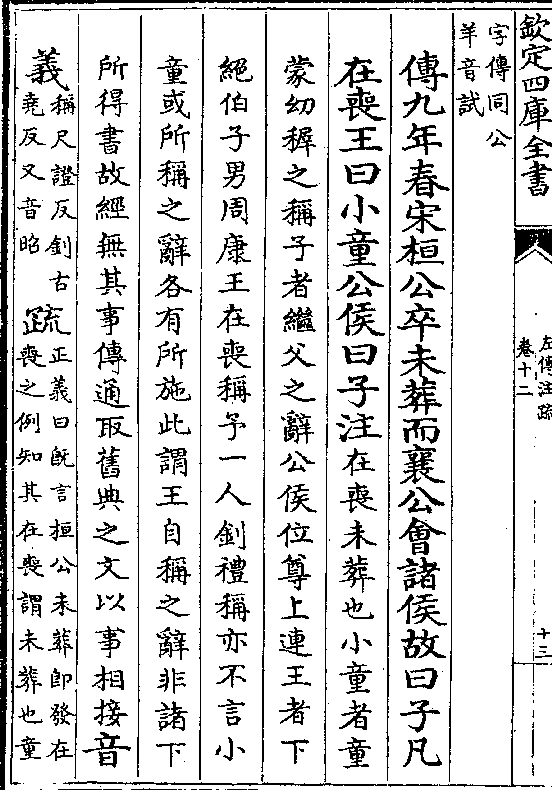 欽定四庫全書
左傳注疏
卷十二
十三
字傳同公
羊音試
傳九年春宋桓公卒未葬而襄公會諸侯故曰子凡
在喪王曰小童公侯曰子注在喪未葬也小童者童
蒙幼穉之稱子者繼父之辭公侯位尊上連王者下
絕伯子男周康王在喪稱予一人釗禮稱亦不言小
童或所稱之辭各有所施此謂王自稱之辭非諸下
所得書故經無其事傳通取舊典之文以事相接音
義稱尺證反釗古
堯反又音昭
疏正義曰旣言桓公未葬卽發在
喪之例知其在喪謂未葬也童